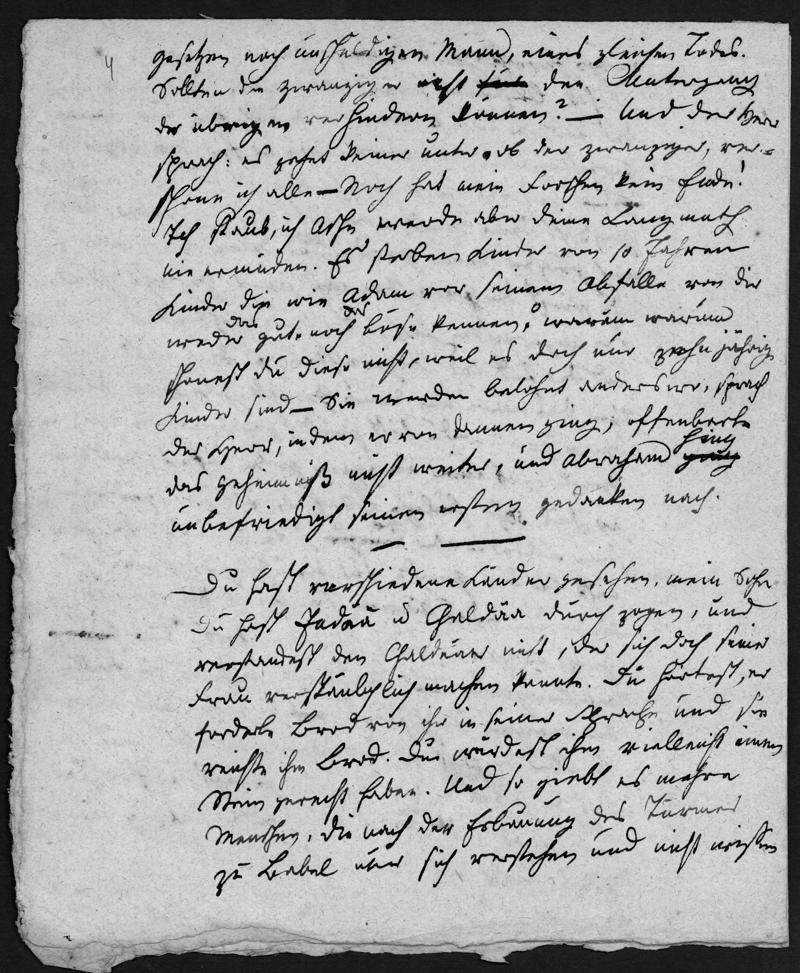 4
gesetzen noch unschuldigen Mann, eines gleichen Todes.
Sollten die zwanziger nicht den Untergang
der übrigen verhindern können? — Und der Herr
sprach: es gehet keiner unter, ob der zwanziger, ver=
schone ich alle — Noch hat mein Forschen kein Ende!
Ich Staub, ich Asche werde aber deine Langmuth
nie ermüden. Es sterben Kinder von 10 Jahren
Kinder die wie Adam vor seinem Abfalle von dir
weder das gute noch das böse kennen, warum warum
schonest du diese nicht, weil es doch nur zehnjährige
Kinder sind — Sie werden belohnt anderswo, sprach
der Herr, indem er von dannen ging, offenbarte
das geheimniß nicht weiter, und Abraham hing
unbefriedigt seinen ersten gedanken nach.
Du hast verschiedene Länder gesehen, mein Sohn
Du hast Judäa u Chaldäa durch zogen, und
verstandest den Chaldäer nicht, der sich doch seiner
Frau verständlich machen konnte. Du hörtest, er
forderte Brod von ihr in seiner Sprache und sie
reichte ihm Brod. Du würdest ihm vielleicht einen
Stein gereicht haben. Und so giebt es mehre
Menschen, die nach der Erbauung des Turmes
zu Babel sich verstehen und nicht wissen